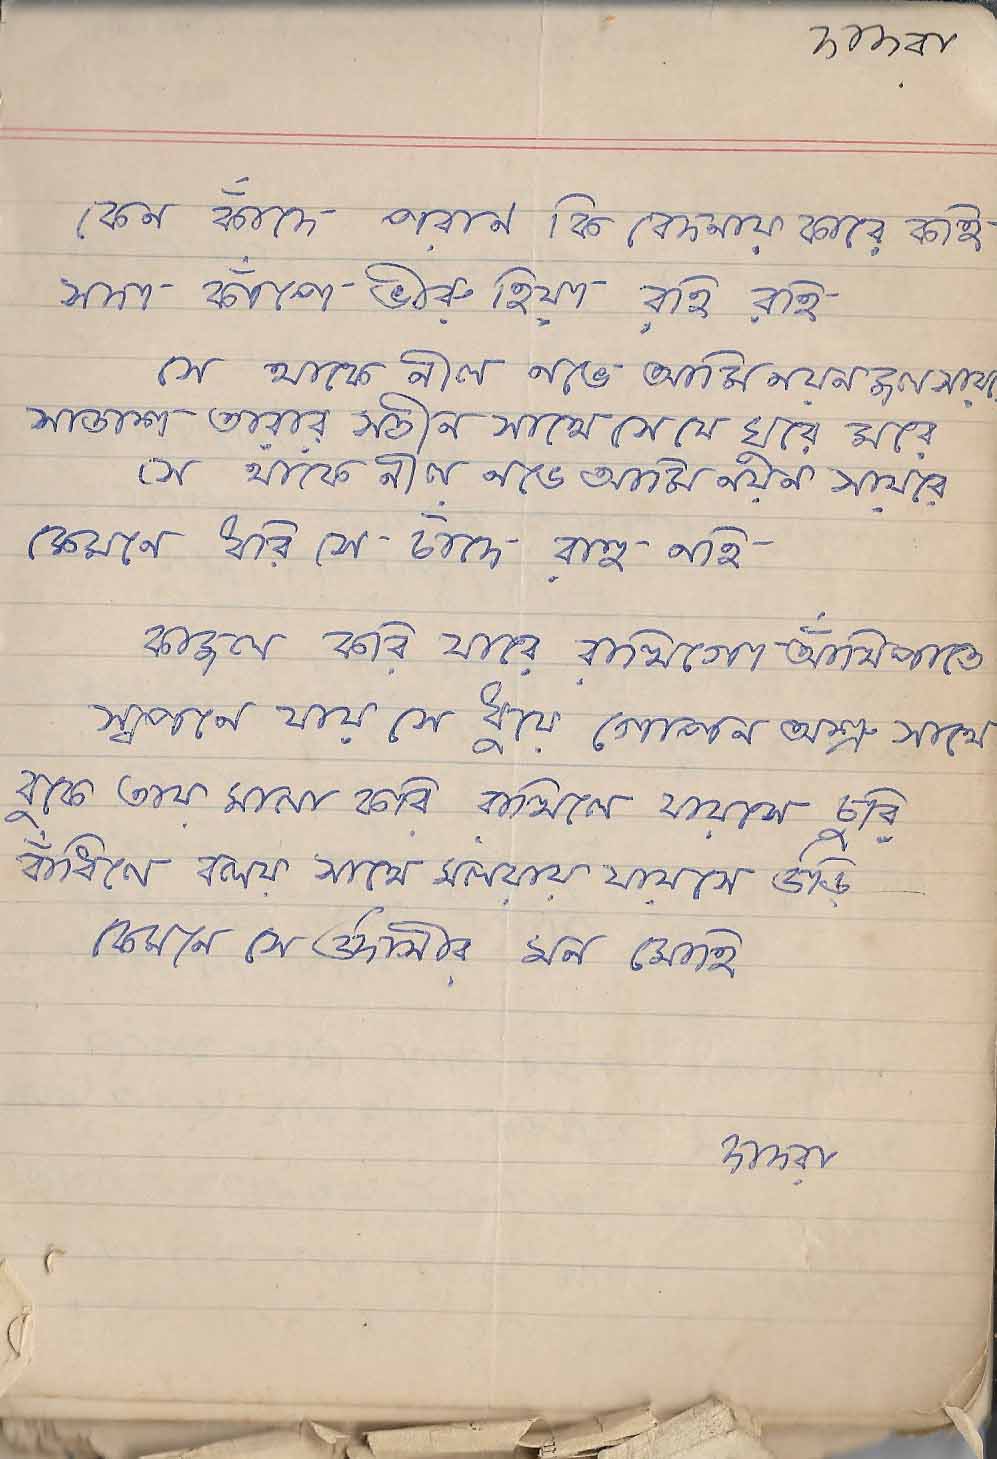 দাদরা
কেন কাঁদে পরান কি বেদনায় কারে কহি
সদা কাঁপে ভীরু হিয়া রহি রহি
সে থাকে নীল নভে আমি নয়ন জল সায়রে
সাতাশ তারার সতীন সাথে সে যে ঘুরে মরে
সে থাকে নীল নভে আমি নয়ন সায়রে
কেমনে ধরি সে চাঁদে রাহু নহি
কাজল করি যারে রাখিগো আঁখিপাতে
স্বপনে যায় সে ধুয়ে গোপন অশ্রু সাথে
বুকে তায় মালা করি রাখিলে যায়সে চুরি
বাঁধিলে বলয় সাথে মলয়ায় যায়সে উড়ি
কেমনে সে উদাসীর মন মোহি
দাদরা